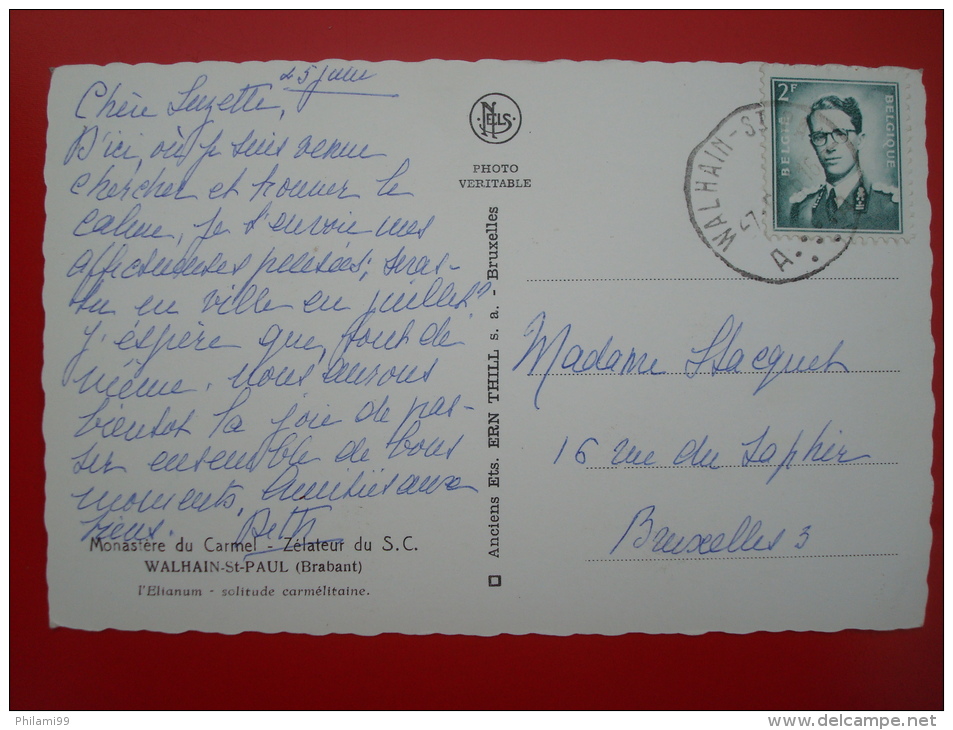 25 juin
Chère Suzette,
D'ici, où je suis venue
chercher et trouver le
calme, je t'envoie mes
affectueuses pensées; seras-
tu en ville en juillet?
J'espère que, tout de
même, nous aurons
bientôt la joie de pas-
ser ensemble de bons
moments. Amitiés aux
tiens. Beth
Monastère du Carmel - Zélateur du S.C.
WALHAIN-St-PAUL (Brabant)
l'Elianum - solitude carmélitaine.
NELS
PHOTO
VERITABLE
Anciens Ets. ERN THILL s. a. - Bruxelles
WALHAIN-ST
A
2F
BELGIE
BELGIQUE
Madame Stacquet
16 rue du Saphir
Bruxelles 3
Philami99
delcampe.net